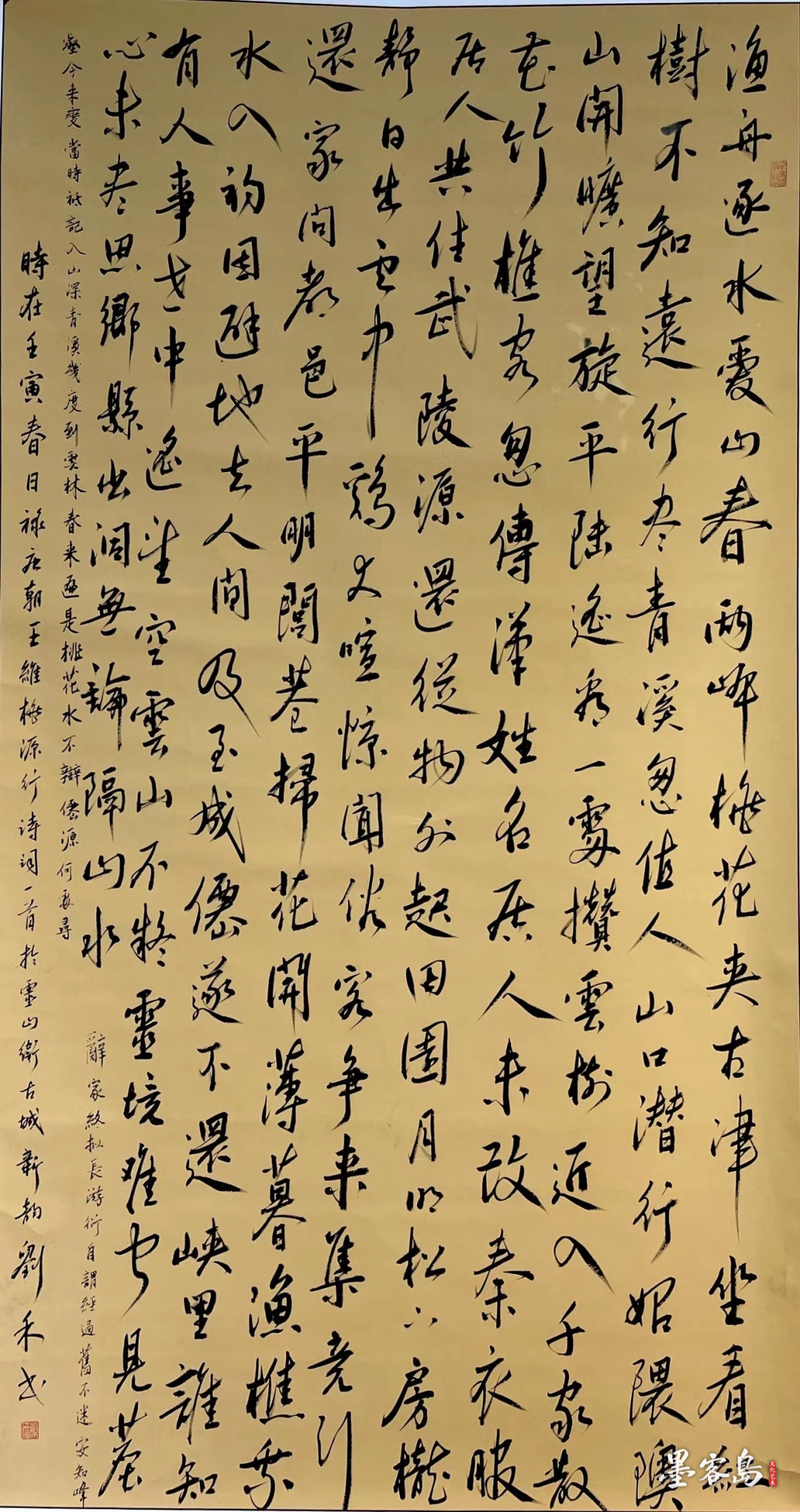 漁舟逐水愛山春兩岸桃花夾古津坐看紅
樹不知遠行盡青溪忽值人山口潛行始隈隩
山開曠望旋平陸遙看一處攢雲樹近入千家散
花竹樵客忽傳漢姓名居人未改秦衣服
居人共住武陵源還從物外起田園月明松下房櫳
靜日出雲中鷄犬喧驚聞俗客争来集竞引
還家問都邑平明閭巷掃花開薄暮漁樵乘
水入初因避地去人間及至成僊遂不還峽里誰知
有人事世中遙望空雲山不疑靈境難聞見塵
心未盡思鄉縣出洞無論隔山水
辭家終拟長游衍自謂經過舊不迷安知峰
壑今来變當時衹記入山深青溪幾度到雲林春来遍是桃花水不辨僊源何處尋
時在壬寅春日禄唐朝王維桃源行诗词一首於靈山衛古城新韵劉禾书
墨客島
文化艺术